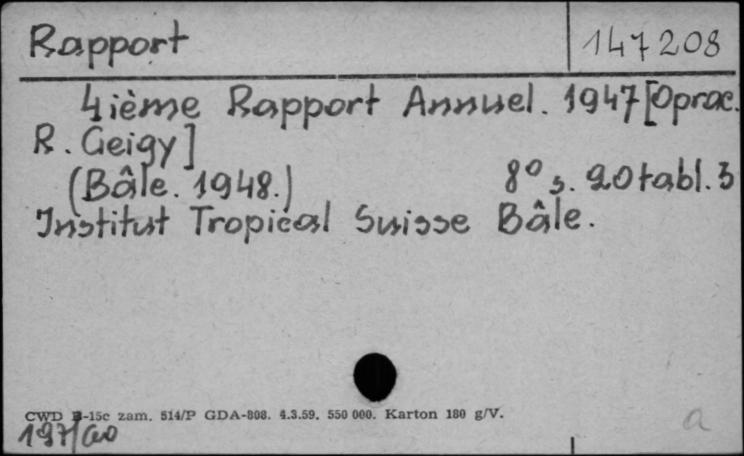 Rapport 147208
4ième Rapport Annuel. 1947 [Oprac.
R. Geigy]
(Bâle. 1948.) 8° s. 20 tabl. 3
Institut Tropical Suisse Bâle.
CWD B-15c zam. 514/P GDA-808. 4.3.59. 550 000. Karton 180 g/V.
a